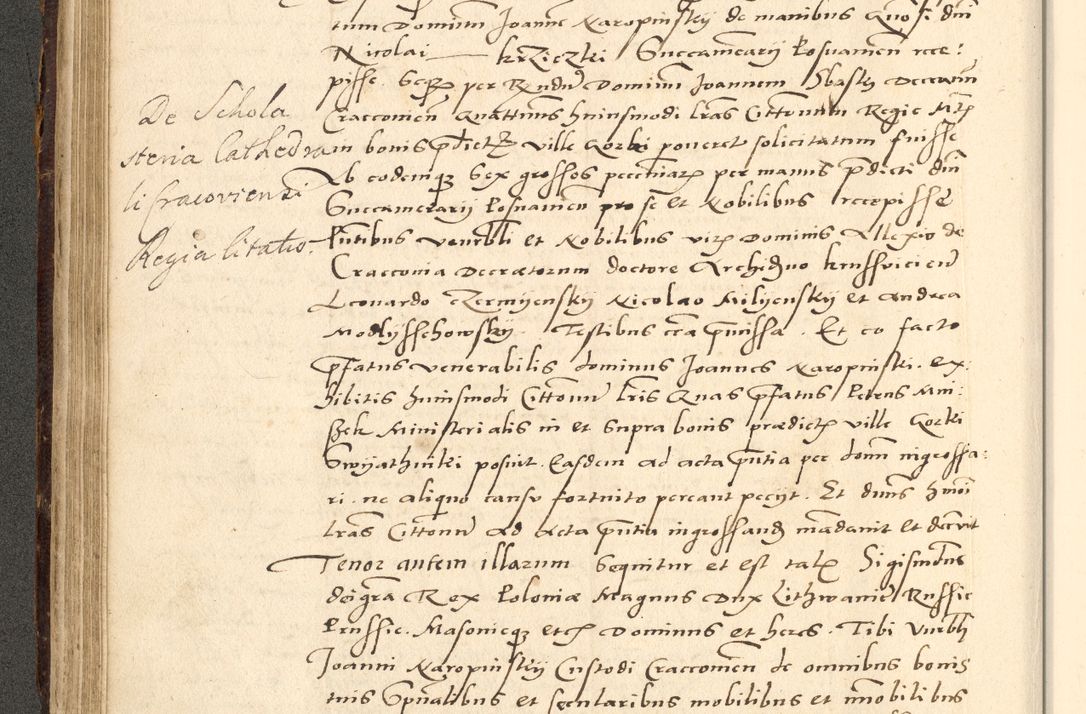 tum Dominum Joannem Karopinskÿ de manibus quo f. dni
Nicolai krziczki Succamerarÿ Posnanien rece:
pisse.
Craccouien quattinus huiusmodi lras Cittorum Regie Mtis
in bonis pdictis ville Gorki poneret solicitatum fuisse
Ab eodemque sex grossos pecuniarum per manus pdicti dni
Succamerarÿ Posnanien pro se et Nobilibus recepisse
Pntibus venerbli et Nobilibus viris Dominis Allexio de
Craccouia Decretorum doctore Archidno krussuicien
Leonardo Czermÿenskÿ Nicolao Milÿenskÿ et Andrea
Modlÿsschowskÿ. Testibus cra pmissa. Et eo facto
pfatus venerabilis dominus Joannes Karopinski. ex:
hibitis huiusmodi Citton lris Quas pfatus Petrus Mni:
szek Ministerialis in et supra bonis prædictis ville Gorki
Swÿathniki posuit. Easdem ad acta pntia per domn ingrossa:
ri. ne aliquo cansu fortuito pereant pecÿt. Et duns hmoi
lras Citton ad Acta pntia ingrossand mādauit et decreuit
Tenor autem illarum sequitur et est talis Sigismdus
dei gra Rex Poloniæ Magnus Dux Lithwanie Russie
Prussie. Masonieque etc Dominus et heres. Tibi venrbli
Joanni Karopinskÿ Custodi Craccouien de omnibus bonis
tuis spualibus et secularibus mobilibus et immobilibus
De Schola
steria Cathedra
li Cracoviensi
Regia Citatio.